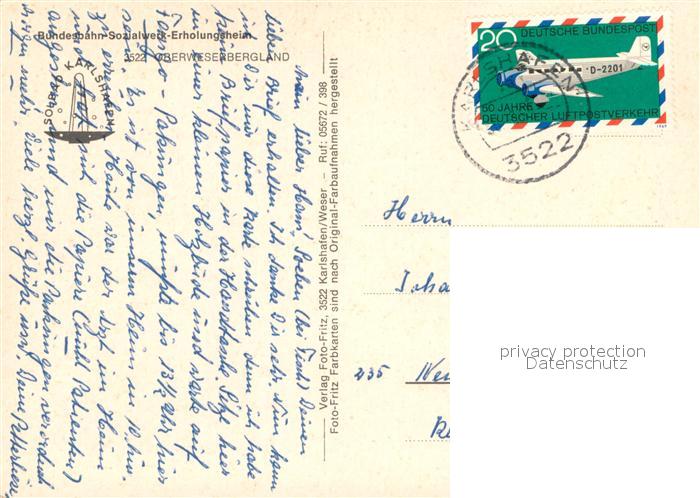 Bundesbahn-Sozialwerk-Erholungsheim
3522 OBERWESERBERGLAND
SOLBAD KARLSHAFEN
Mein lieber Hans, Soeben (bei Tisch) Deinen
lieben Brief erhalten. Ich danke Dir sehr. Nun kann
ich Dir nur diese Karte schreiben denn ich habe
kein Briefpapier in der Handtasche. Sitze hier
in einer kleinen und warte auf
Fango - Packungen, muß bis 13½ Uhr hier
Es ist von unserem Heim in 10 Min.
zu Heute war der Arzt im Heim
und hat die Papiere (und Patienten)
und mir die Packungen verordnet
viele herzl. Grüße
Verlag Foto-Fritz, 3522 Karlshafen/Weser - Ruf: 05672 / 398
Foto-Fritz Farbkarten sind nach Original-Farbaufnahmen hergestellt
20 DEUTSCHE BUNDESPOST
D-2201
50 JAHRE
DEUTSCHER LUFTPOSTVERKEHR
1969
KARLSHAFEN
3522
Herrn
Joha
235 Neu
privacy protection
Datenschutz